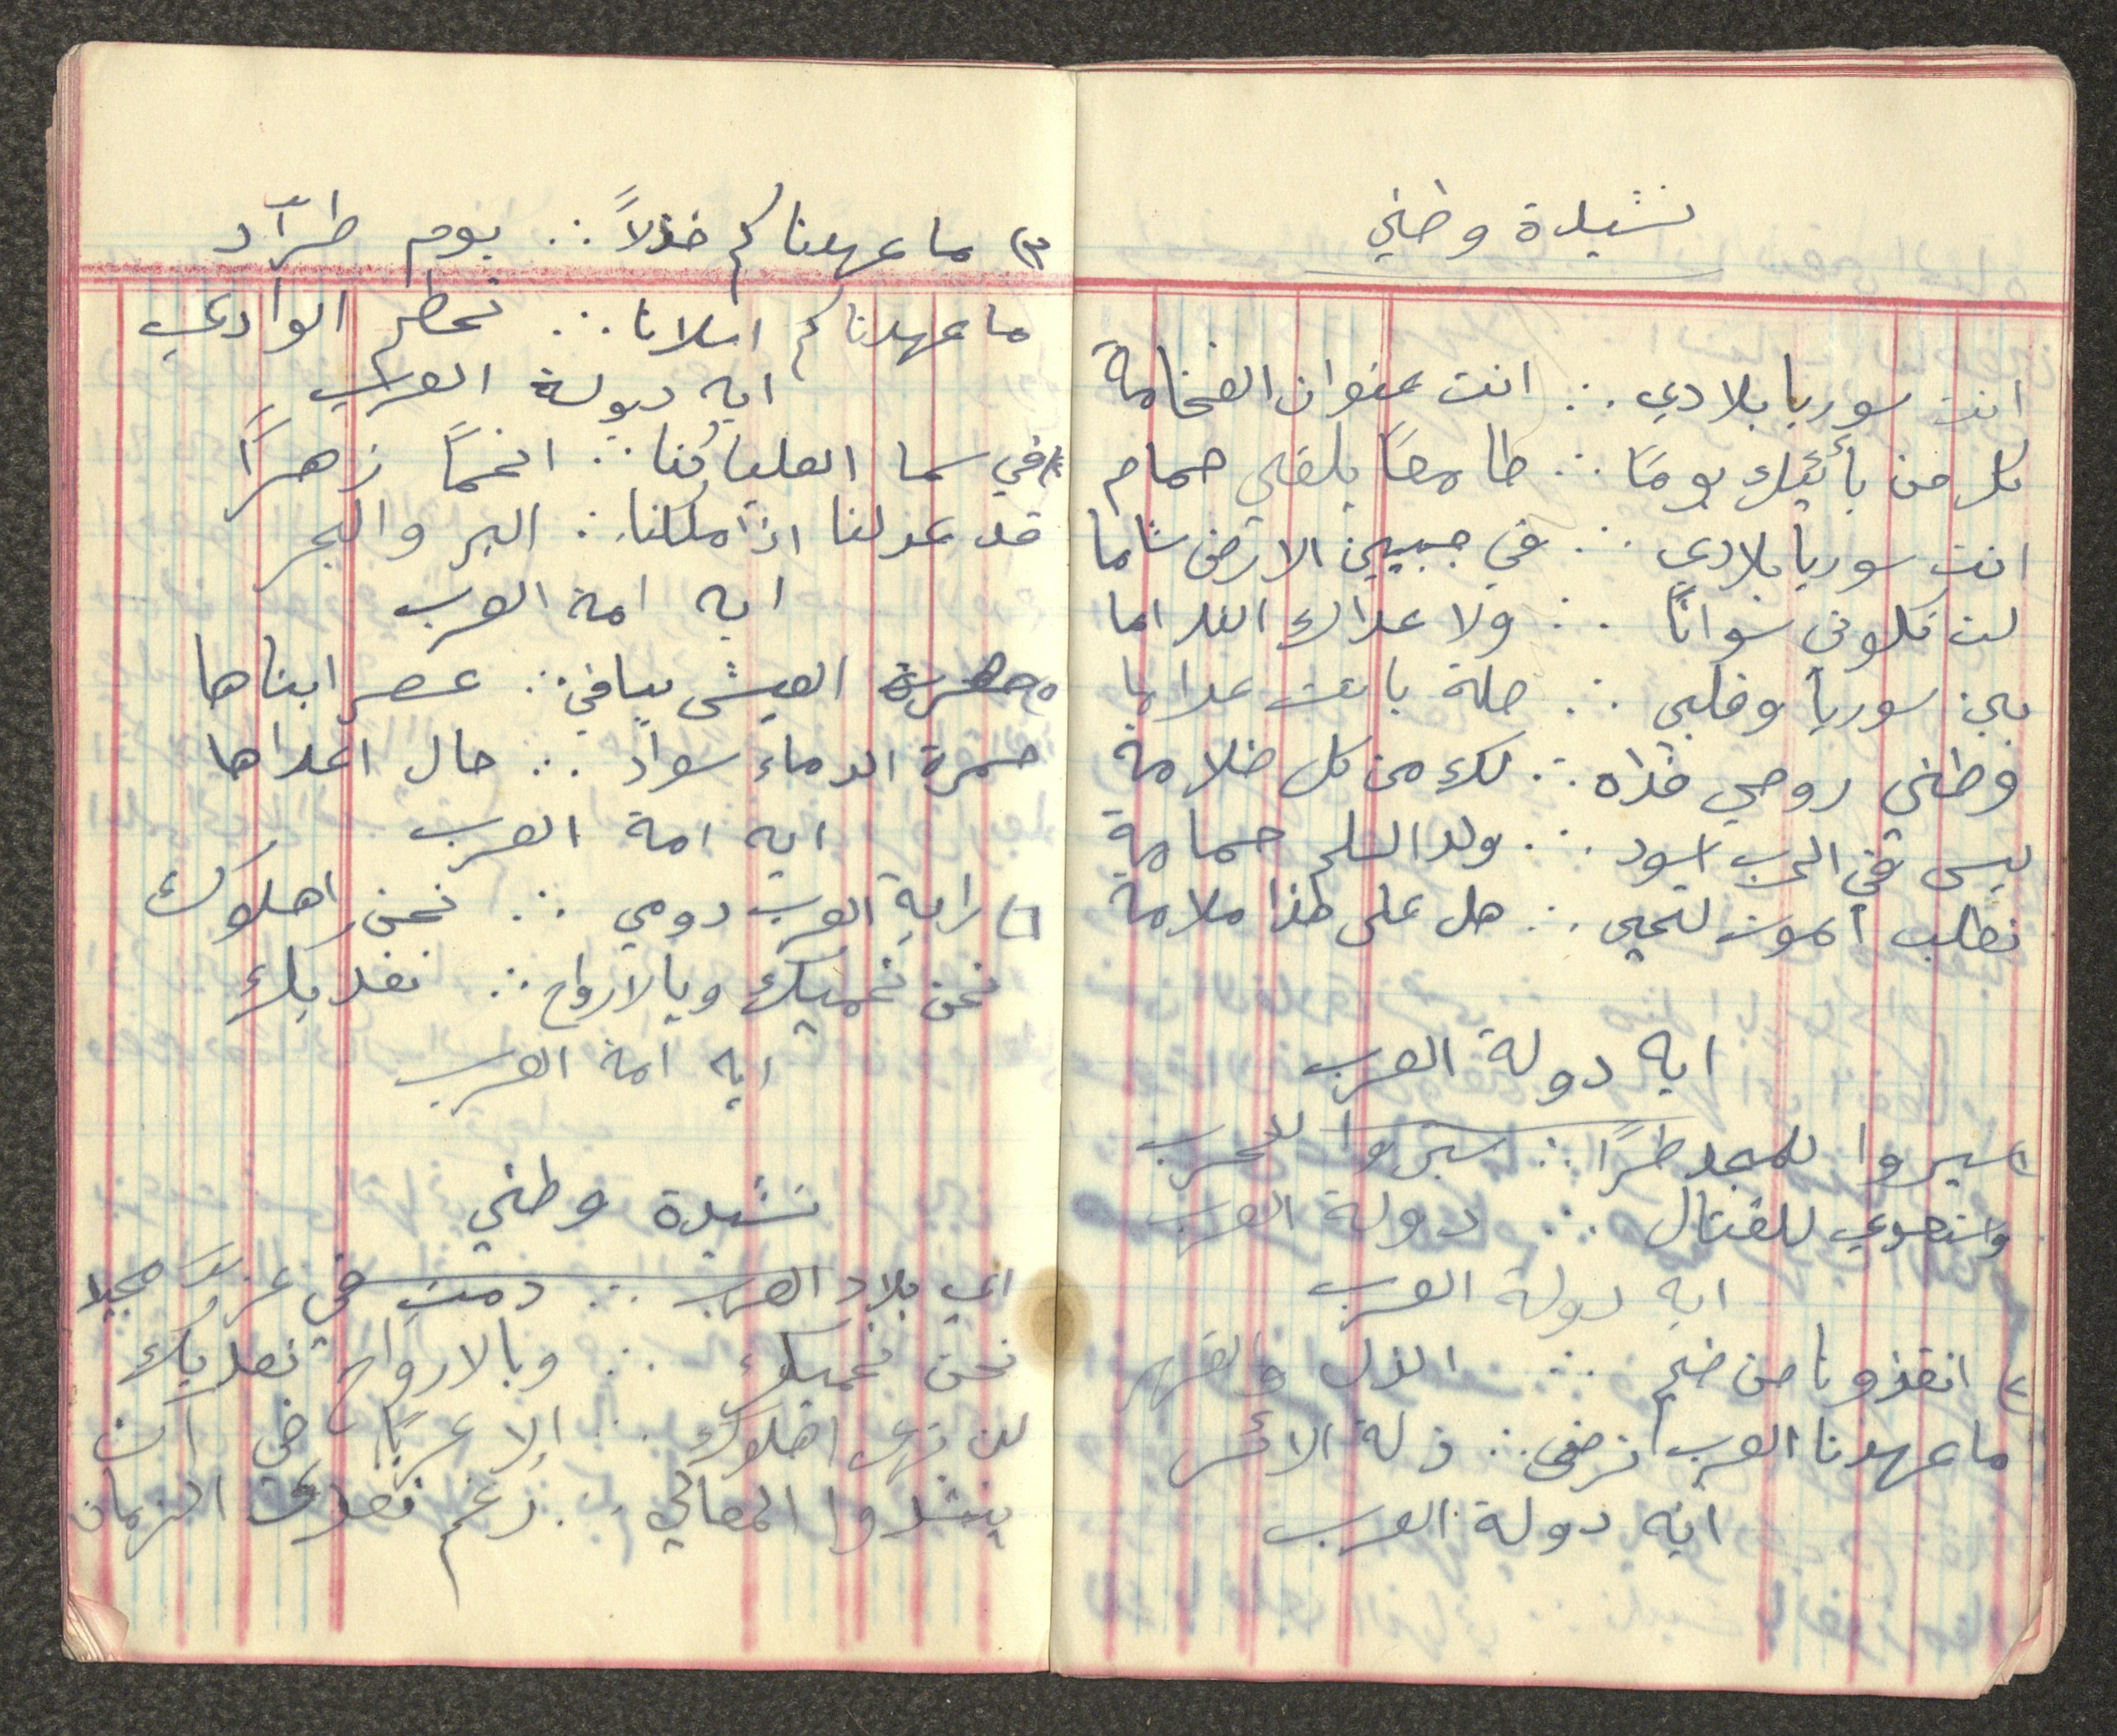 نشيدة وطني
انت سوريا بلادي ∴ انت عنوان الفخامة
كل من يأتيك يومًا ∴ طامعًا يلقى حمام
انت سوريا بلادي ∴ في جبيين الارض شاما
لن تكوني سوانًا ∴ ولا عداك الندا اما
بين سوريا وقلبي ∴ صلة باتت عدابا
وطني روحي فداه ∴ لك من كل ظلامة
ليس في الحرب اسود ∴ ولدا السلم حمامة
نطلب الموت لنحيى ∴ هل على هذا ملامة
ايه دولة العرب
١) سيروا للمجد طرًا ∴ سيروا للحرب
وانتموي للقتال ∴ دولة العرب
ايه دولة العرب
٢) انقذونا من ضيم ∴ الذل والقهر
ما عهدنا العرب ترضى ∴ ذلة الأسر
ايه دولة العرب
٣) ما عهدناكم خذلاً ∴ يوم طرّاد
ما عهدناكم اسلانا ∴ تحطم الوادي
ايه دولة العرب
٤) في سما العليا كنا ∴ انجمًا زهرًا
قد عدلنا اذ املكنا ∴ البر والبحر
ايه امة العرب
٥) حمرة العيش بيافي ∴ عصر ابناها
حمرة الدماء سواد ∴ حال اعداها
ايه امة العرب
٦) راية العرب دومي ∴ نحن اهلوك
نحن نحميك وبالارواح ∴ نفديك
ايه امة العرب
نشيدة وطني
اي بلاد العرب ∴ دمت في عزّ مجيد
نحن نحميك ∴ وبالارواح نفديك
لن نرى اهلوك ∴ إلا عربًا في آن
ينشدوا المعالي ∴ رغم تعدي الزمان